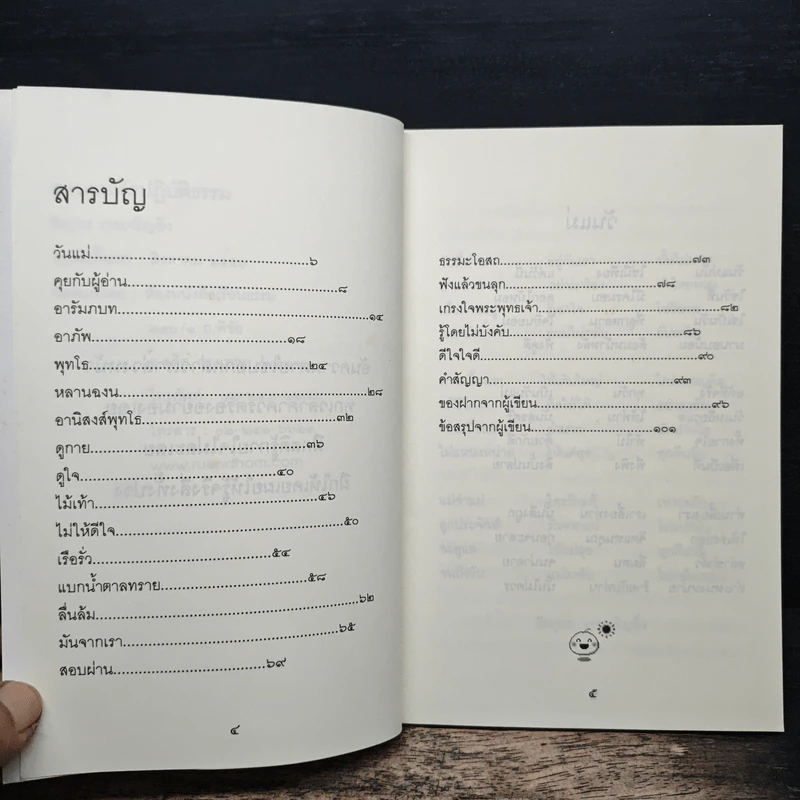 สารบัญ
วันแม่....................................................๖
คุยกับผู้อ่าน..........................................๘
อารัมภบท..................................................๑๔
อาภัพ...........................................๑๘
พุทโธ..............................................๒๔
หลานฉงน..................................................๒๘
อานิสงส์พุทโธ..........................................๓๒
ดูกาย..............................................๓๖
ดูใจ........................................๔๐
ไม้เท้า..............................................๔๖
ไม่ให้ดีใจ..............................................๕๐
เรือรั่ว.....................................๕๔
แบกน้ำตาลทราย..............................๕๘
ลื่นล้ม..................................................๖๒
มันจากเรา..........................................๖๕
สอบผ่าน..............................๖๙
๔
ธรรมะโอสถ..........................................๗๓
ฟังแล้วขนลุก..............................๗๘
เกรงใจพระพุทธเจ้า..............................๘๒
รู้โดยไม่บังคับ..............................๘๖
ดีใจใจดี..........................................๙๐
คำสัญญา..............................๙๓
ของฝากจากผู้เขียน..............................๙๖
ข้อสรุปจากผู้เขียน....................๑๐๑
๕